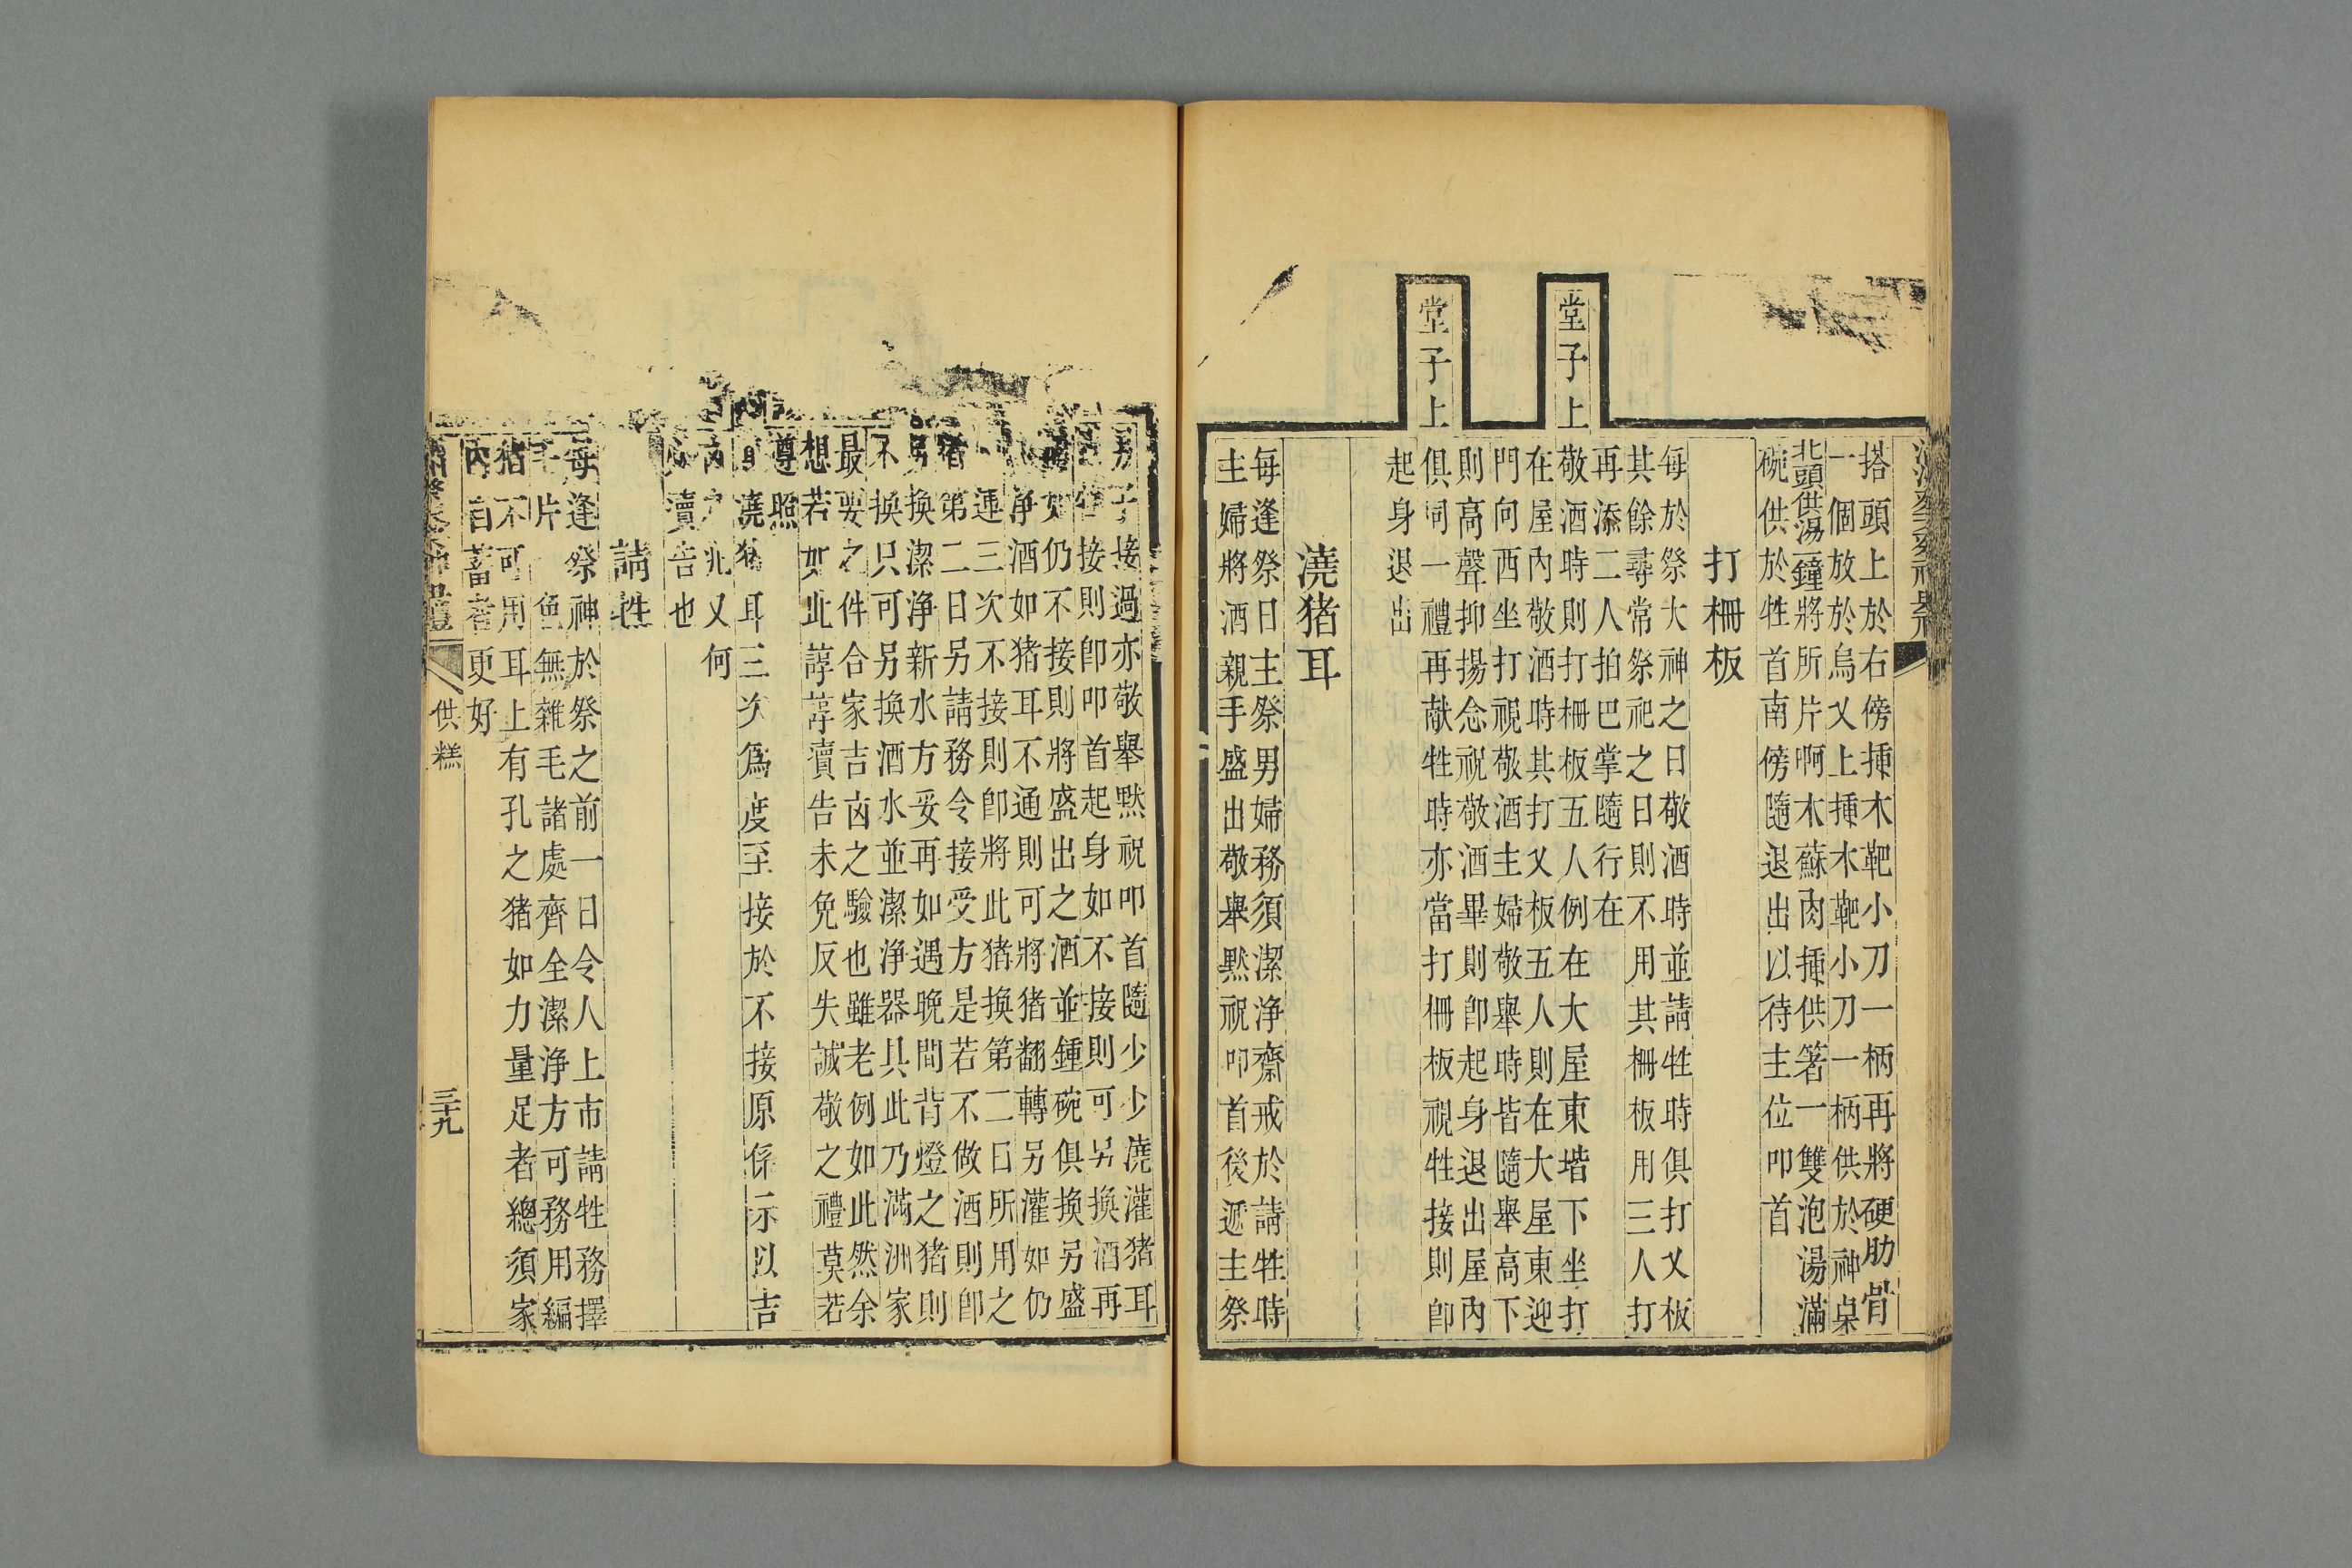 搭頭上於右傍挿木靶小刀一柄再將硬肋骨
一個放於烏叉上挿木靶小刀一柄供於神桌
北頭供湯一鐘將所片啊木蘇肉挿供箸一雙泡湯滿
碗供於牲首南傍隨退出以待主位叩首
打柵板
每於祭大神之日敬酒時並請牲時俱打叉板
其餘尋常祭祀之日則不用其柵板用三人打
再添二人拍巴掌隨行在
堂子上敬酒時則打柵板五人例在大屋東堦下坐打
在屋內敬酒時其打叉板五人則在大屋東迎
門向西坐打視敬酒主婦敬舉時皆隨舉高下
則高聲抑揚念祝敬酒畢則即起身退出屋內
堂子上俱同一禮再献牲時亦當打柵板視牲接則即
起身退出
澆猪耳
每逢祭日主祭男婦務須潔淨齋戒於請牲時
主婦將酒親手盛出敬舉默祝叩首後遞主祭
男子接過亦敬舉默祝叩首隨少少澆灌猪耳
接則即叩首起身如不接則可另換酒再
如仍不接則將盛出之酒並鍾碗俱換另盛
淨酒如猪耳不通則可將猪翻轉另灌如仍
連三次不接則即將此猪換第二日所用之
猪第二日另請務令接受方是若不做酒則即
另換潔淨新水方妥再如遇晚間背燈之猪則
不換只可另換酒水並潔淨器具此乃滿洲家
最要之件合家吉凶之驗也雖老例如此然余
想若如此諄諄瀆告未免反失誠敬之禮莫若
遵照
澆猪耳三次爲度至接於不接原係示以吉
凶之兆又何
必瀆告也
請牲
每逢祭神於祭之前一日令人上市請牲務擇
毛片一色無雜毛諸處齊全潔淨方可務用編
猪不可用耳上有孔之猪如力量足者總須家
內自蓄者更好
供糕
三十九